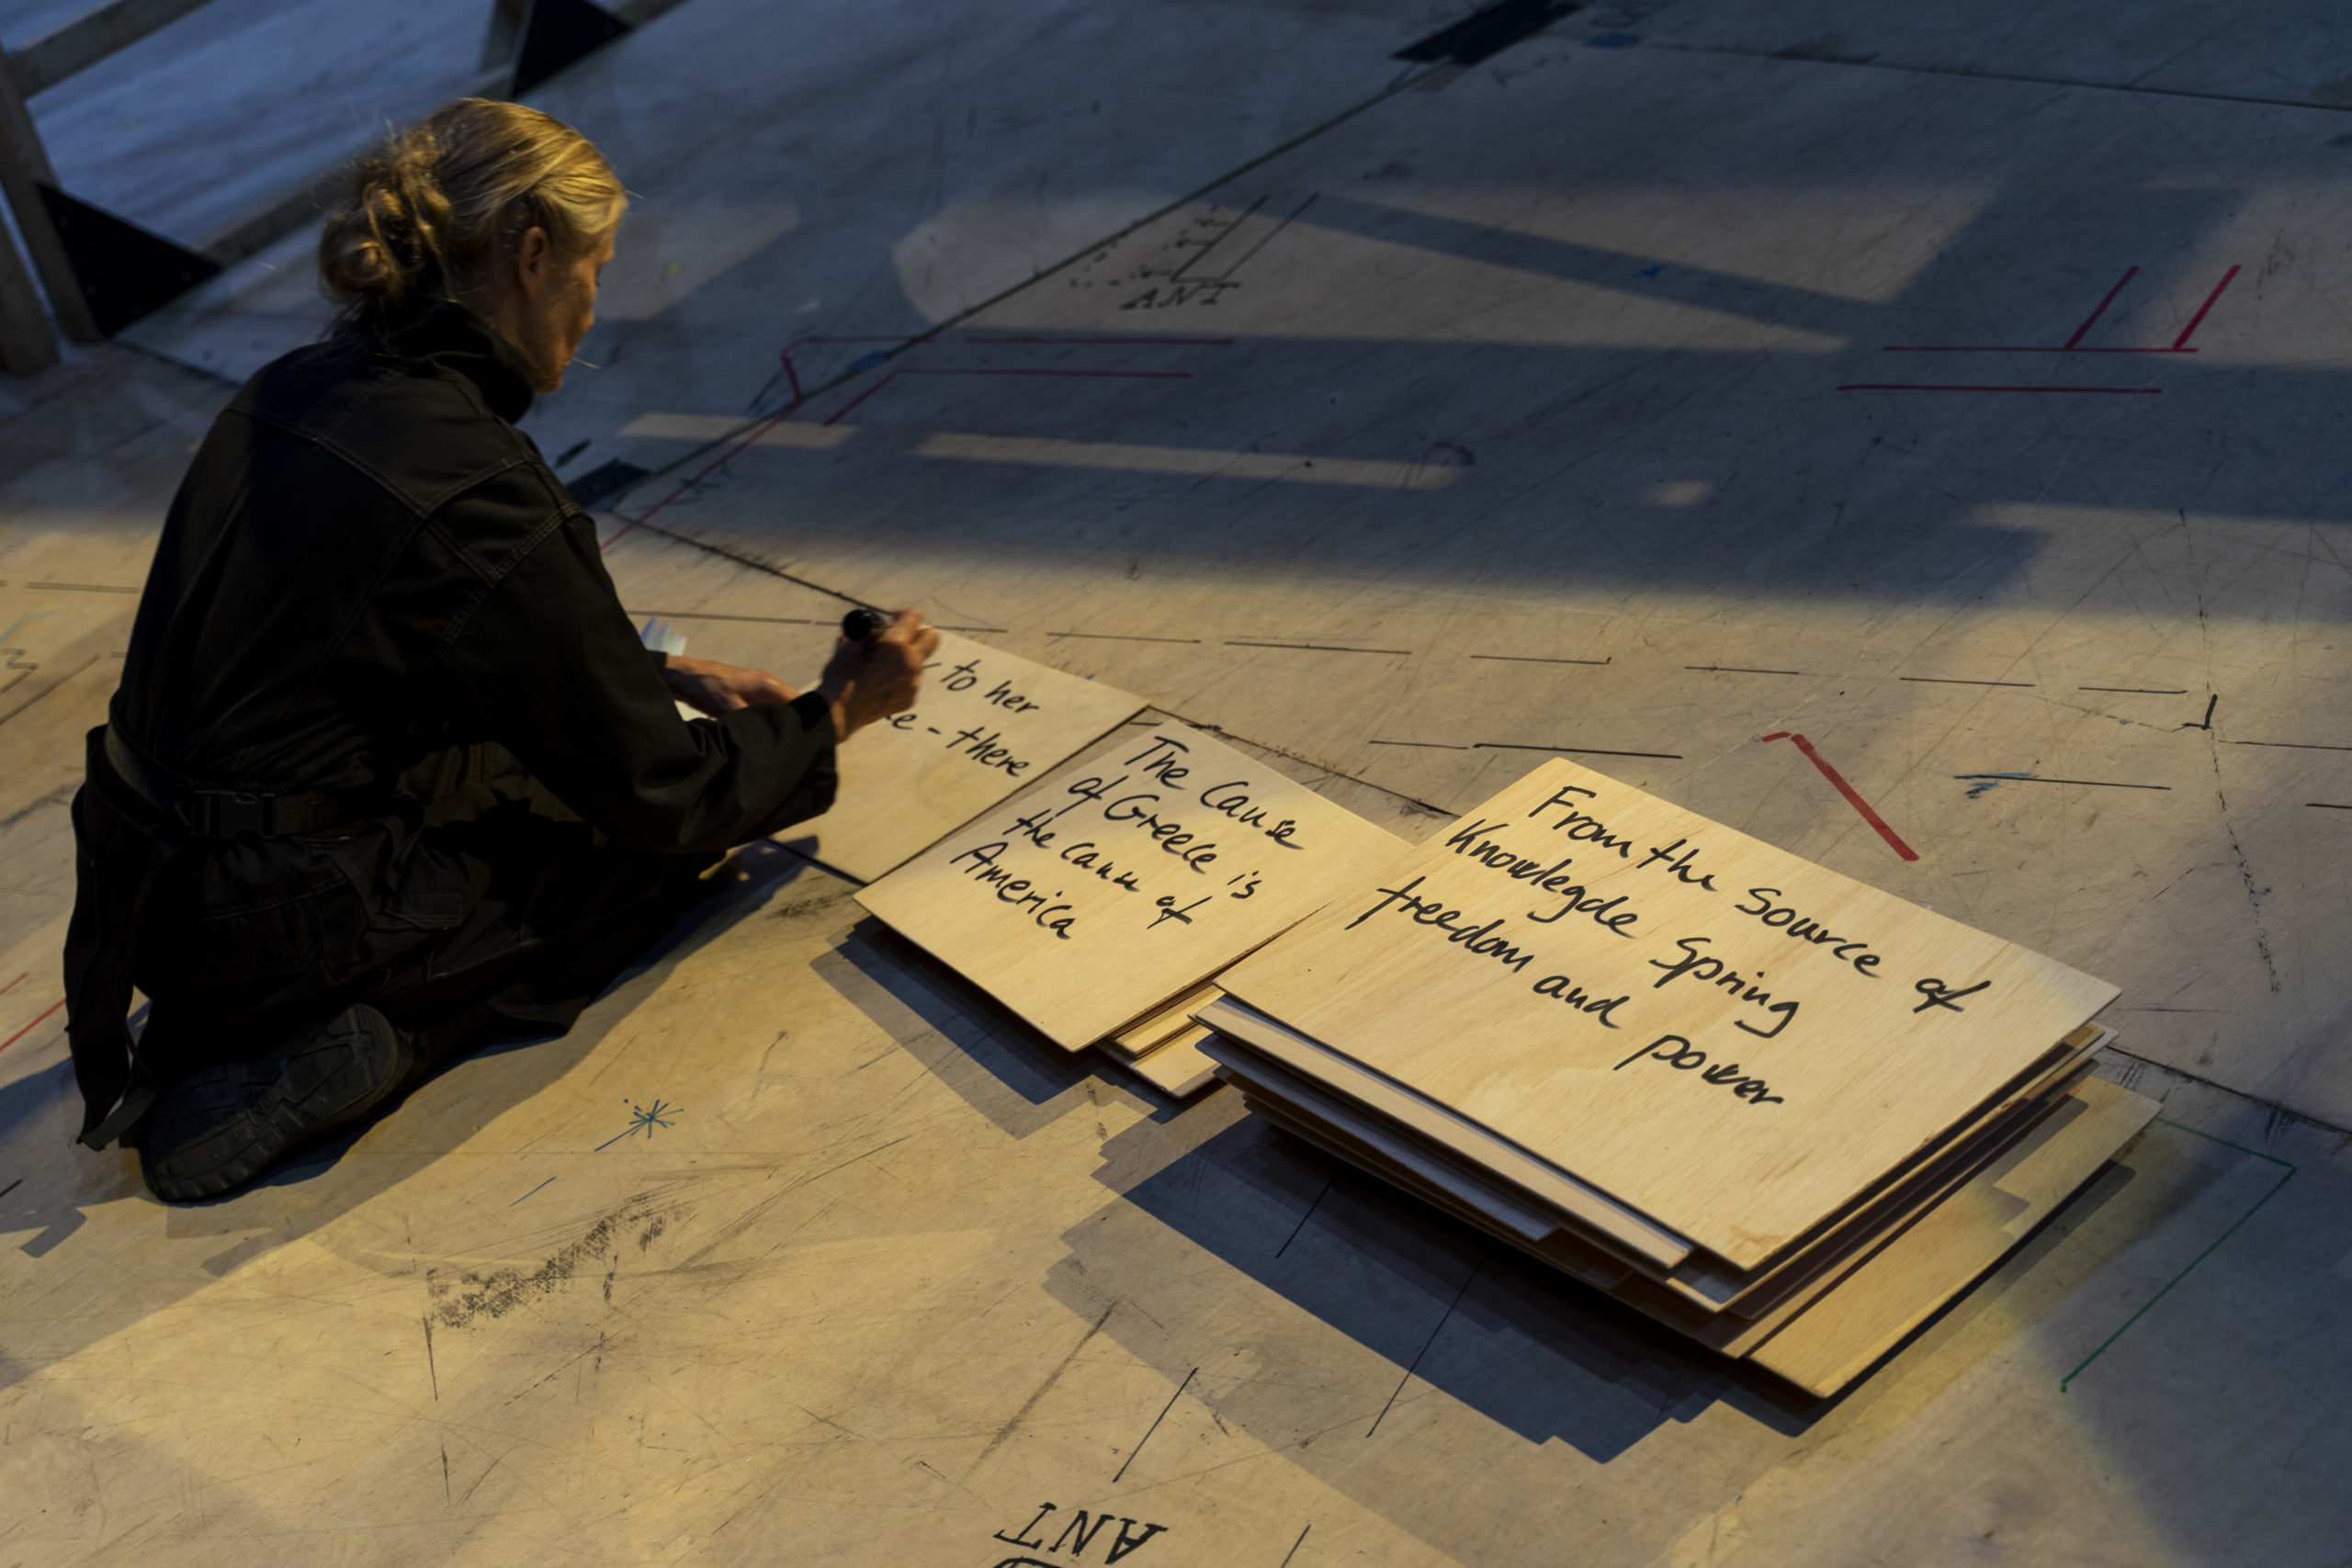 ANT
to her
- there
The Cause
of Greece is
the cause of
America
From the source of
Knowlegde Spring
freedom and power
ANT